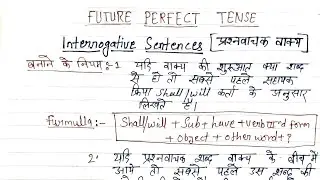 FUTURE PERFECT TENSE
Interrogative Sentences प्रश्नवाचक वाक्य
बनाने के नियम:-1 यदि वाक्य की शुरूआत क्या शब्द
से हो तो सबसे पहले सहायक
क्रिया Shall/will कर्ता के अनुसार
लिखते है।
Furmulla:- Shall/will + Sub + have + verb IIIrd form
+ object + other word + ?
2. यदि प्रश्नवाचक शब्द वाक्य के बीच में
आये तो सबसे पहले उस शब्द की